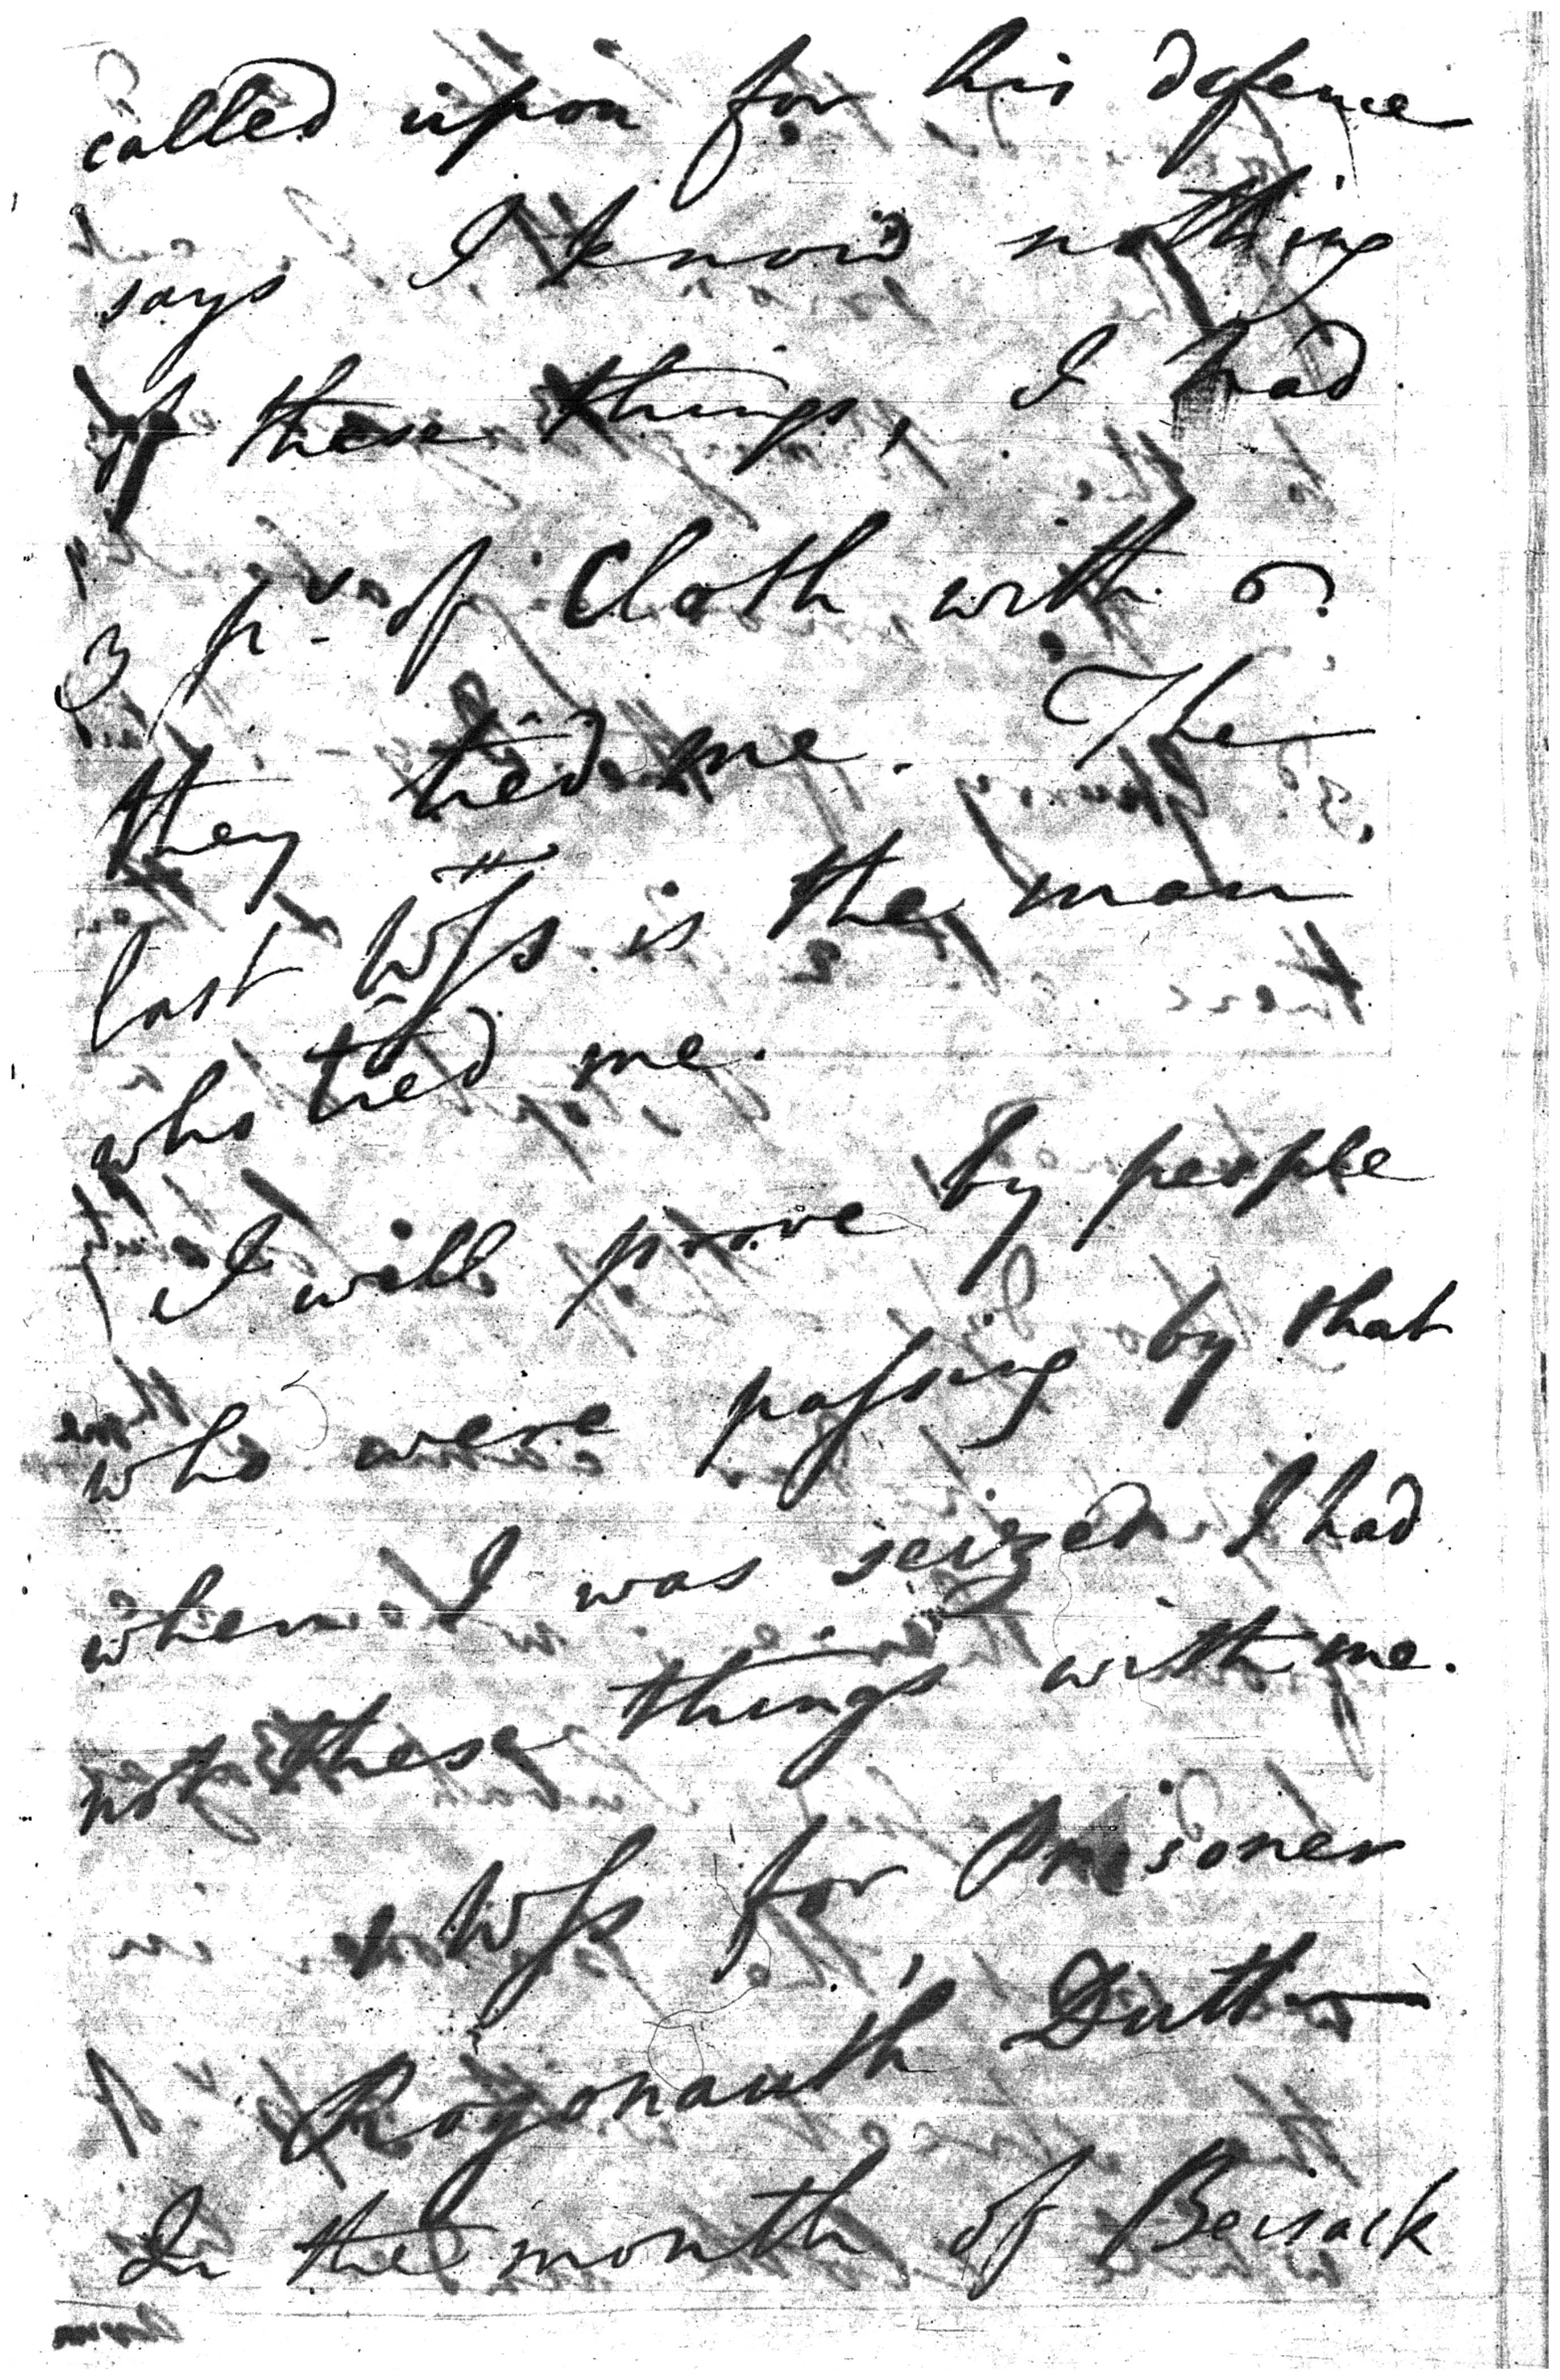 called upon for his defence
says I know nothing
of these things, I had
3 ps of Cloth with
they tied me. The
last Wss is the man
who tied me.
I will prove by people
who were passing by that
when I was seized I had
not these things with me.
Wss for Prisoner
Rogonauth Dutt
In the month of Beisack